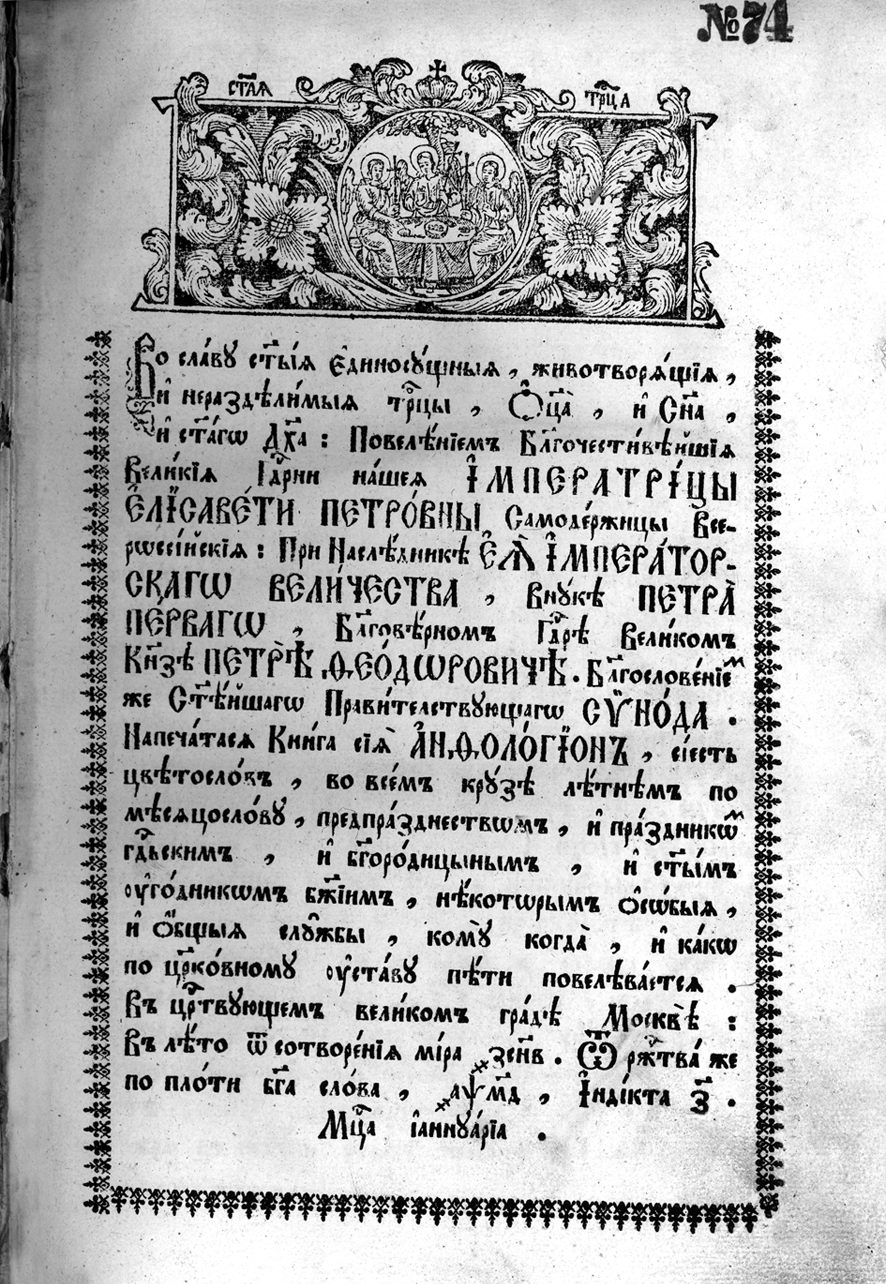 № 74
СТ҃АѦ ТРⷪ҇ЦА
Во сла́вѹ ст҃ы́ѧ є҆диносѹ́щныѧ, животворѧ́щїѧ,
и҆ нераздѣли́мыѧ трⷪ҇цы, Ѻ҆ц҃а̀, и҆ Сн҃а,
и҆ ст҃а́гѡ Дх҃а: Повелѣ́нїемъ Бл҃гочести́вѣйшїѧ
Вели́кїѧ Гдⷭ҇рни на́шеѧ І҆МПЕРАТРІ́ЦЫ
Є҆ЛІСАВЕ́ТИ ПЕТРО́ВНЫ Самоде́ржицы Все-
рѡссі́йскїѧ: При Наслѣ́дникѣ Є҆Ѧ̀ І҆МПЕРА́ТОР-
СКАГѠ ВЕЛИ́ЧЕСТВА, Внѹ́кѣ ПЕТРА̀
ПЕ́РВАГѠ, Бл҃говѣ́рномъ Гдⷭ҇рѣ Вели́комъ
Кн҃зѣ ПЕТРѢ̀ Ѳ҆ЕО́ДѠРОВИЧѢ. Бл҃гослове́нїеⷨ
же Ст҃ѣ́йшагѡ Прави́телствѹющагѡ СѴ҆НО́ДА.
Напеча́тасѧ Кни́га сїѧ̀ А҆НѲОЛО́ГЇОНЪ, сїе́сть
цвѣтосло́въ, во все́мъ крѹ́зѣ лѣ́тнемъ по
мѣсѧцосло́вѹ, предпра́зднествѡмъ, и҆ пра́здникѡⷨ
гдⷭ҇ьскимъ, и҆ бг҃оро́дицынымъ, и҆ ст҃ы́мъ
ѹ҆го́дникѡмъ бж҃їимъ, нѣ́котѡрымъ ѻ҆сѡ́быѧ,
и҆ ѻ҆́бщыѧ слѹ́жбы, комѹ̀ когда̀, и҆ ка́кѡ
по цр҃ко́вномѹ ѹ҆ста́вѹ пѣ́ти повелѣва́етсѧ.
Въ црⷭ҇твѹющемъ вели́комъ гра́дѣ Москвѣ̀:
Въ лѣ́то ѿ сотворе́нїѧ мі́ра ҂зсн҃в. Ѿ ржⷭ҇тва́ же
по пло́ти бг҃а сло́ва, ҂аѱм҃д, І҆нді́кта з҃.
Мцⷭ҇а і҆аннѹа́рїа.